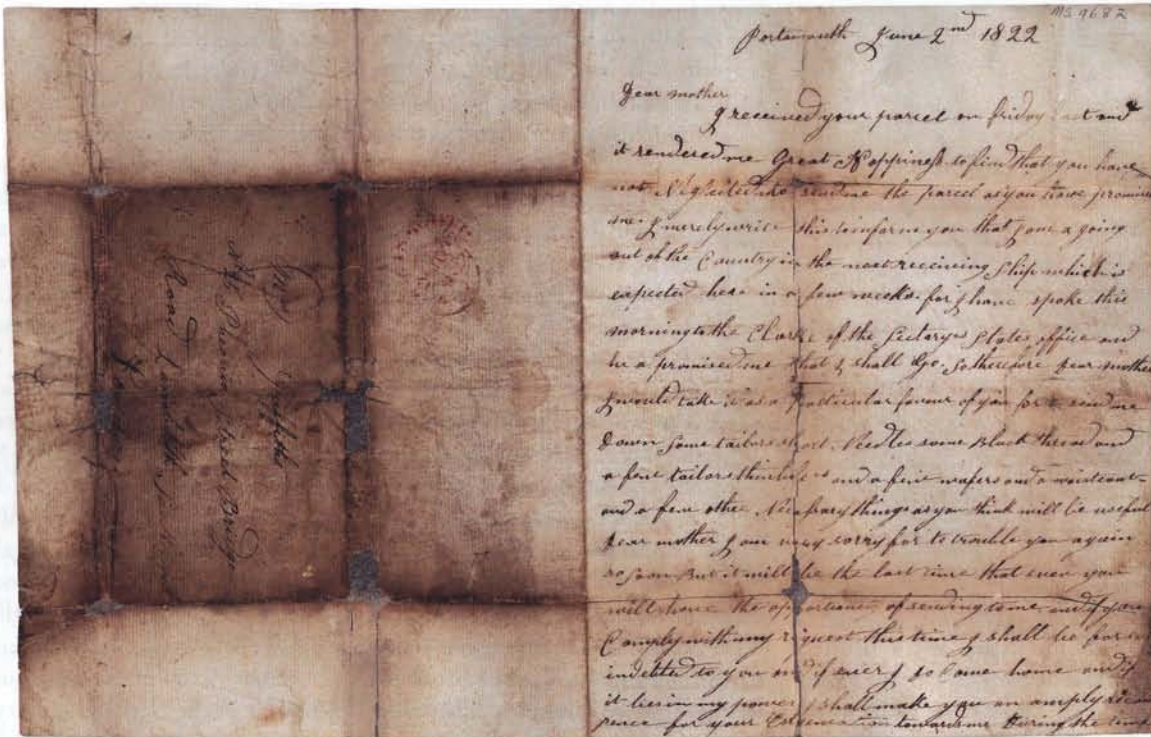 MS 9682
Portsmouth June 2nd 1822
Dear mother
I received your parcel on friday last and
it rendered me Great Happiness to find that you have
not Neglected to send me the parcel as you have promised
me. I merely write this to inform you that I am a going
out of the Country in the next receiving Ship which is
expected here in a few weeks for I have spoke this
morning to the Clark of the Sectorys States office and
he a promised me that I shall Go. So therefore Dear mother
I would take it as a particular favour of you for to send me
Down Some tailors Needles some Black thread and
a few tailors thimbles and a few wafers and a waistcoat
and a few other Necessary things as you think will be useful
Dear mother I am very sorry for to trouble you again
so soon But it will be the last time that ever you
will have the of sending to me and if you
Comply with my request this time I shall be for
indebted to you and if ever I so Come home and if
it lies in my power I shall make you an amply
pence for your towards me During the time
Griffith
Bridge
Road